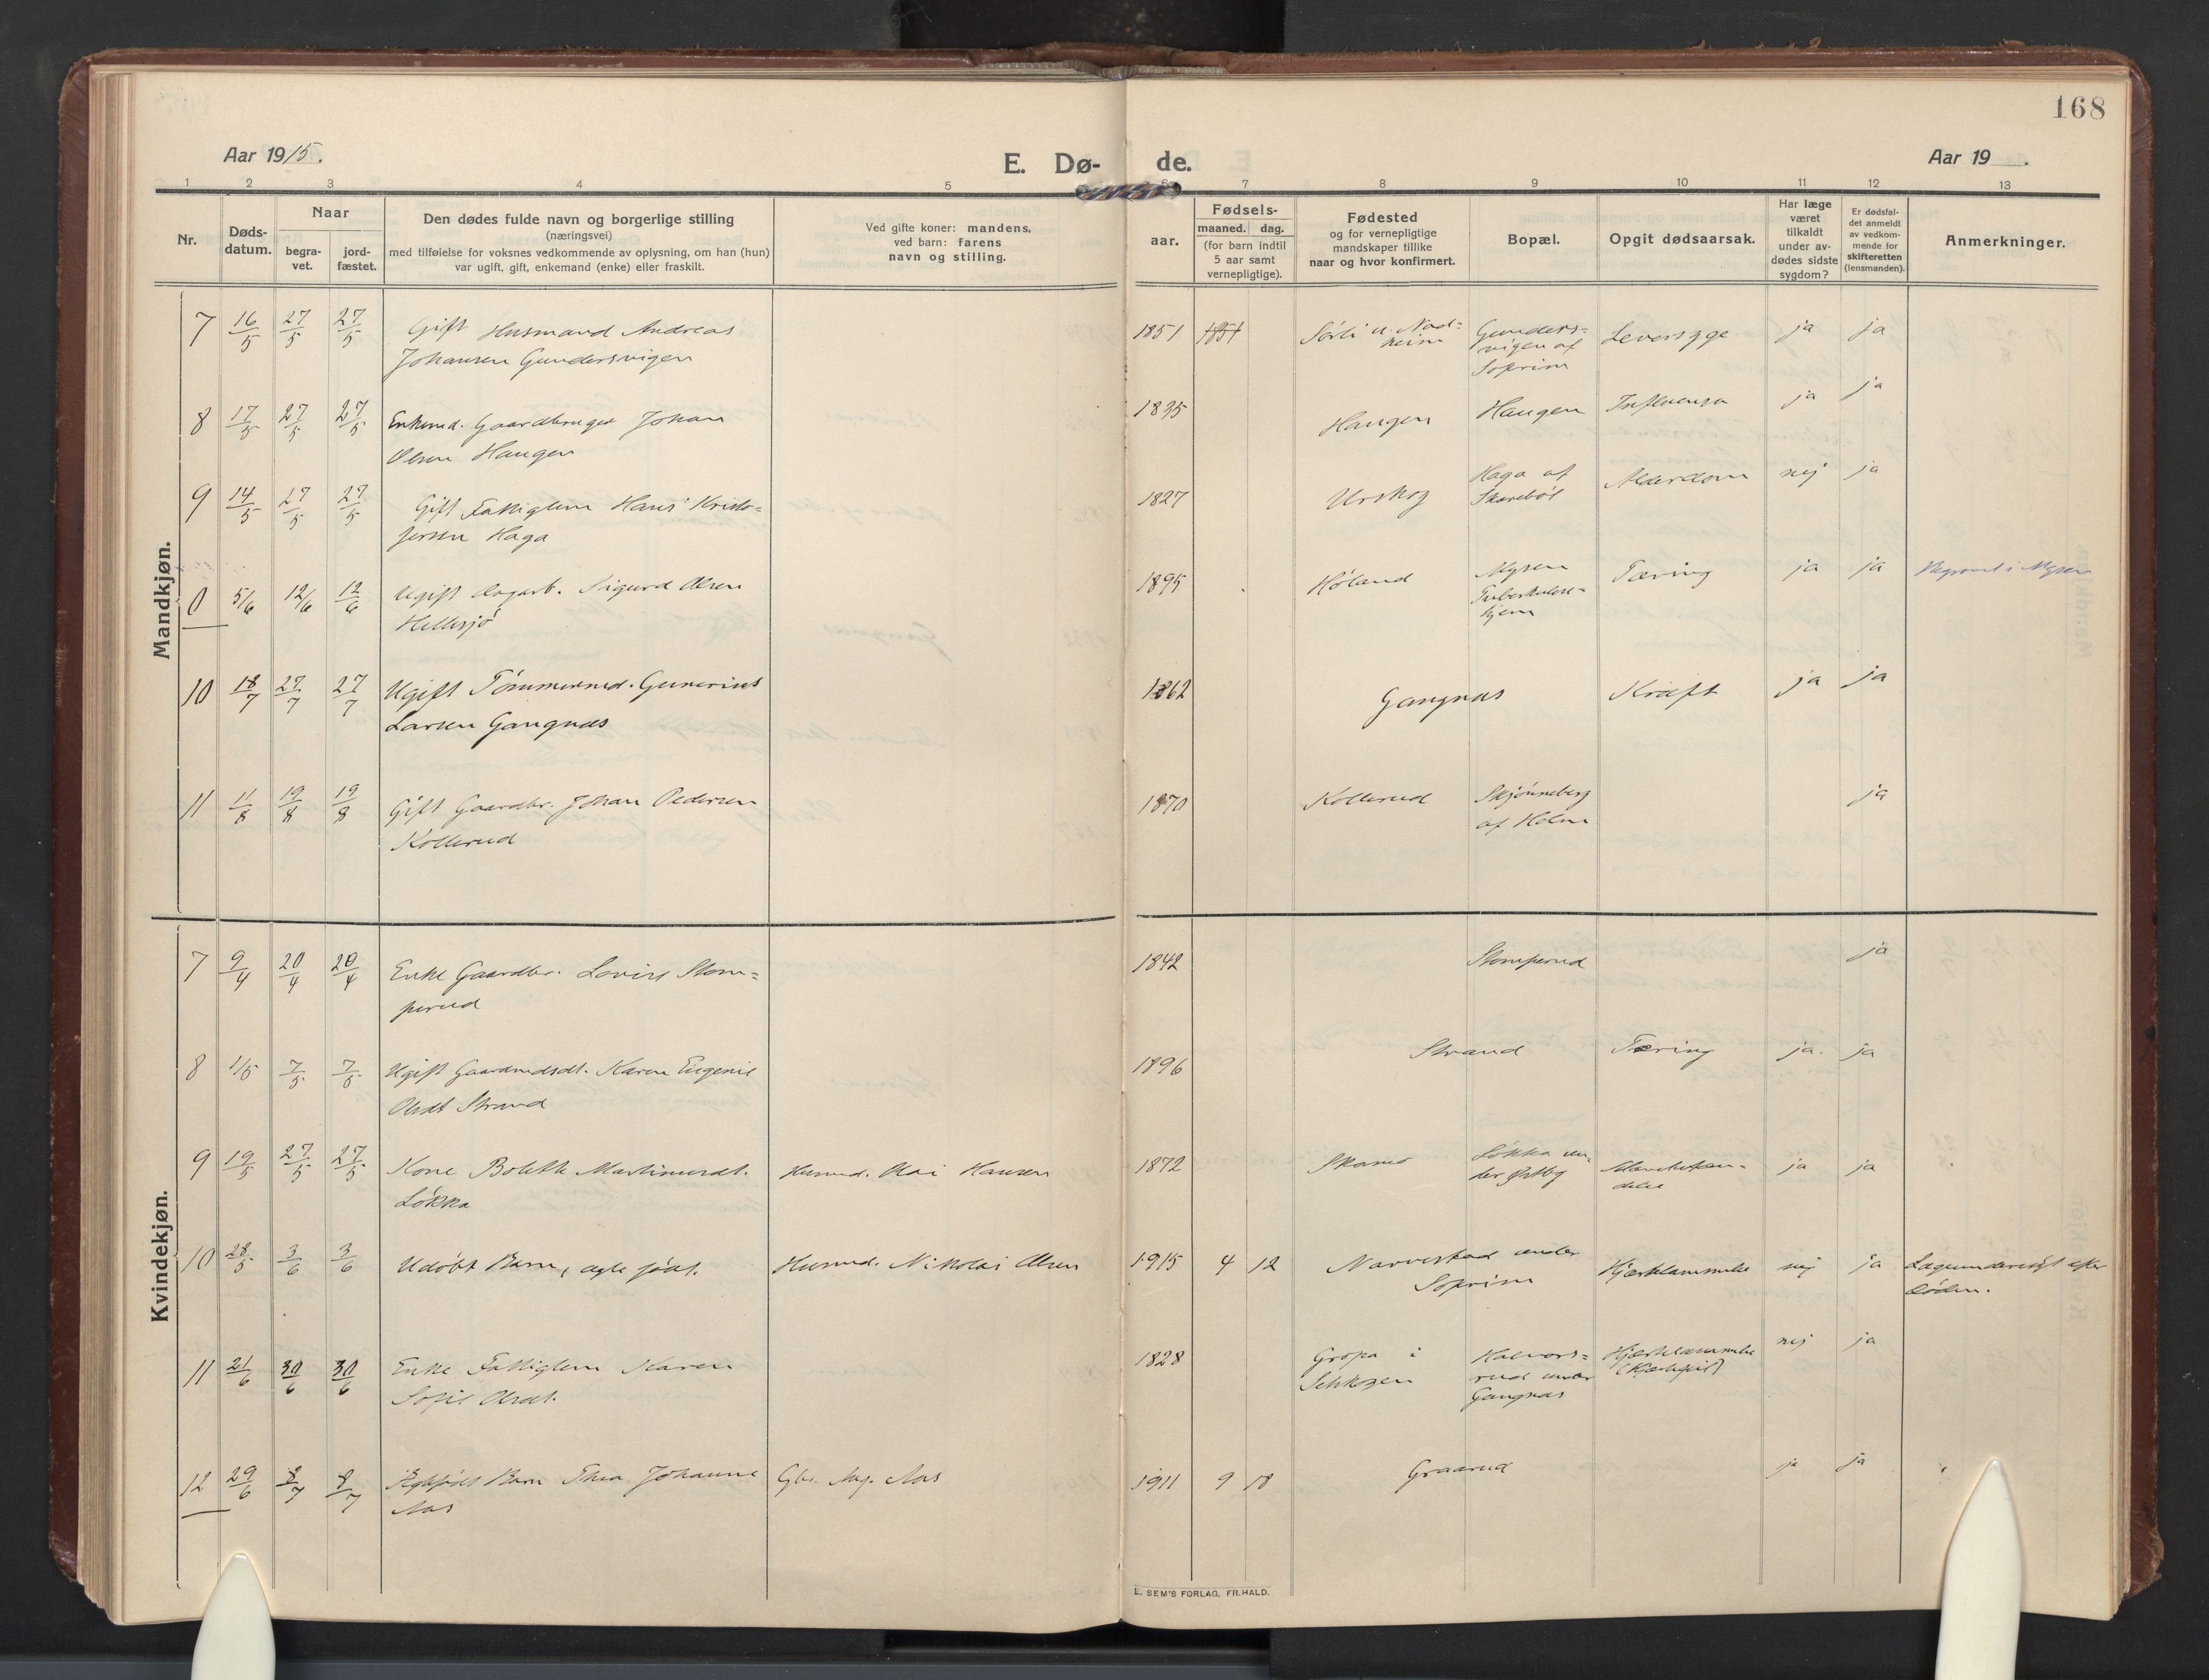 168
Aar 1915.
E. Dø- de.
Aar 19 .
1 2 3 4 5 6 7 8 9 10 11 12 13
Nr.
Døds-
datum.
Naar
begra-
vet.
jord-
fæstet.
Den dødes fulde navn og borgerlige stilling
(næringsvei)
med tilføielse for voksnes vedkommende av oplysning, om han (hun)
var ugift, gift, enkemand (enke) eller fraskilt.
Ved gifte koner: mandens,
ved barn: farens
navn og stilling.
aar.
Fødsels-
maaned. dag.
(for barn indtil
5 aar samt
vernepligtige).
Fødested
og for vernepligtige
mandskaper tillike
naar og hvor konfirmert.
Bopæl.
Opgit dødsaarsak.
Har læge
været
tilkaldt
under av-
dødes sidste
sygdom?
Er dødsfal-
det anmeldt
av vedkom-
mende for
skifteretten
(lensmanden).
Anmerkninger.
Mandkjøn.
7 16/5 27/5 27/5 Gift Husmand Andreas
Johansen Gundersvigen
1851 1851 Sörli u. Nad=
heim
Gunders=
vigen af
Soprim
Leversyge ja ja
8 17/5 27/5 27/5 Enkemd. Gaardbruger Johan
Olsen Haugen
1835 Haugen Haugen Influensa ja ja
9 14/5 27/5 27/5 Gift Fattiglem Hans Kristo=
fersen Haga
1827 Urskog Haga af
Skarebøl
Alderdom nej ja
0 5/6 12/6 12/6 Ugift Dagarb. Sigurd Olsen
Hellesjö
1895 Höland Mysen
Tuberkulose=
hjem
Tæring ja ja Begravet i Mysen
10 18/7 27/7 27/7 Ugift Tömmermd. Gunerius
Larsen Gangnæs
1862 Gangnæs Kræft ja ja
11 11/8 19/8 19/8 Gift Gaardbr. Johan Pedersen
Kollerud
1870 Kollerud Skjönneberg
af Holm
ja
Kvindekjøn.
7 9/4 20/4 20/4 Enke Gaardbr. Lovise Stom=
perud
1842 Stomperud ja
8 1/5 7/5 7/5 Ugift Gaardmdsdt. Karen Eugenie
Olsdt Strand
1896 Strand Tæring ja. ja
9 19/5 27/5 27/5 Kone Boleth Martinusdt.
Lökka
Husmd. Hansen
1872 Lökka un-
der Østby
ja ja
10 28/5 3/6 3/6 Udöbt Barn, ægte født.
Husmd. Nikolai Olsen
1915 4 12 Narvestad under
Soprim
Hjertelammelse nej ja Lægeundersögt efter
Döden.
11 21/6 30/6 30/6 Enke Fattiglem Karen
Sofie Olsdt.
1828 Gropa i
Setskogen
Kalvers=
rud under
Gangnæs
Hjertelammelse
nej ja
12 29/6 8/7 8/7 Ægtefødt Barn Thea Johanne
Aas
Gbr. Aug. Aas
1911 9 18 Graarud ja ja
E. SEM'S FORLAG, FR.HALD.